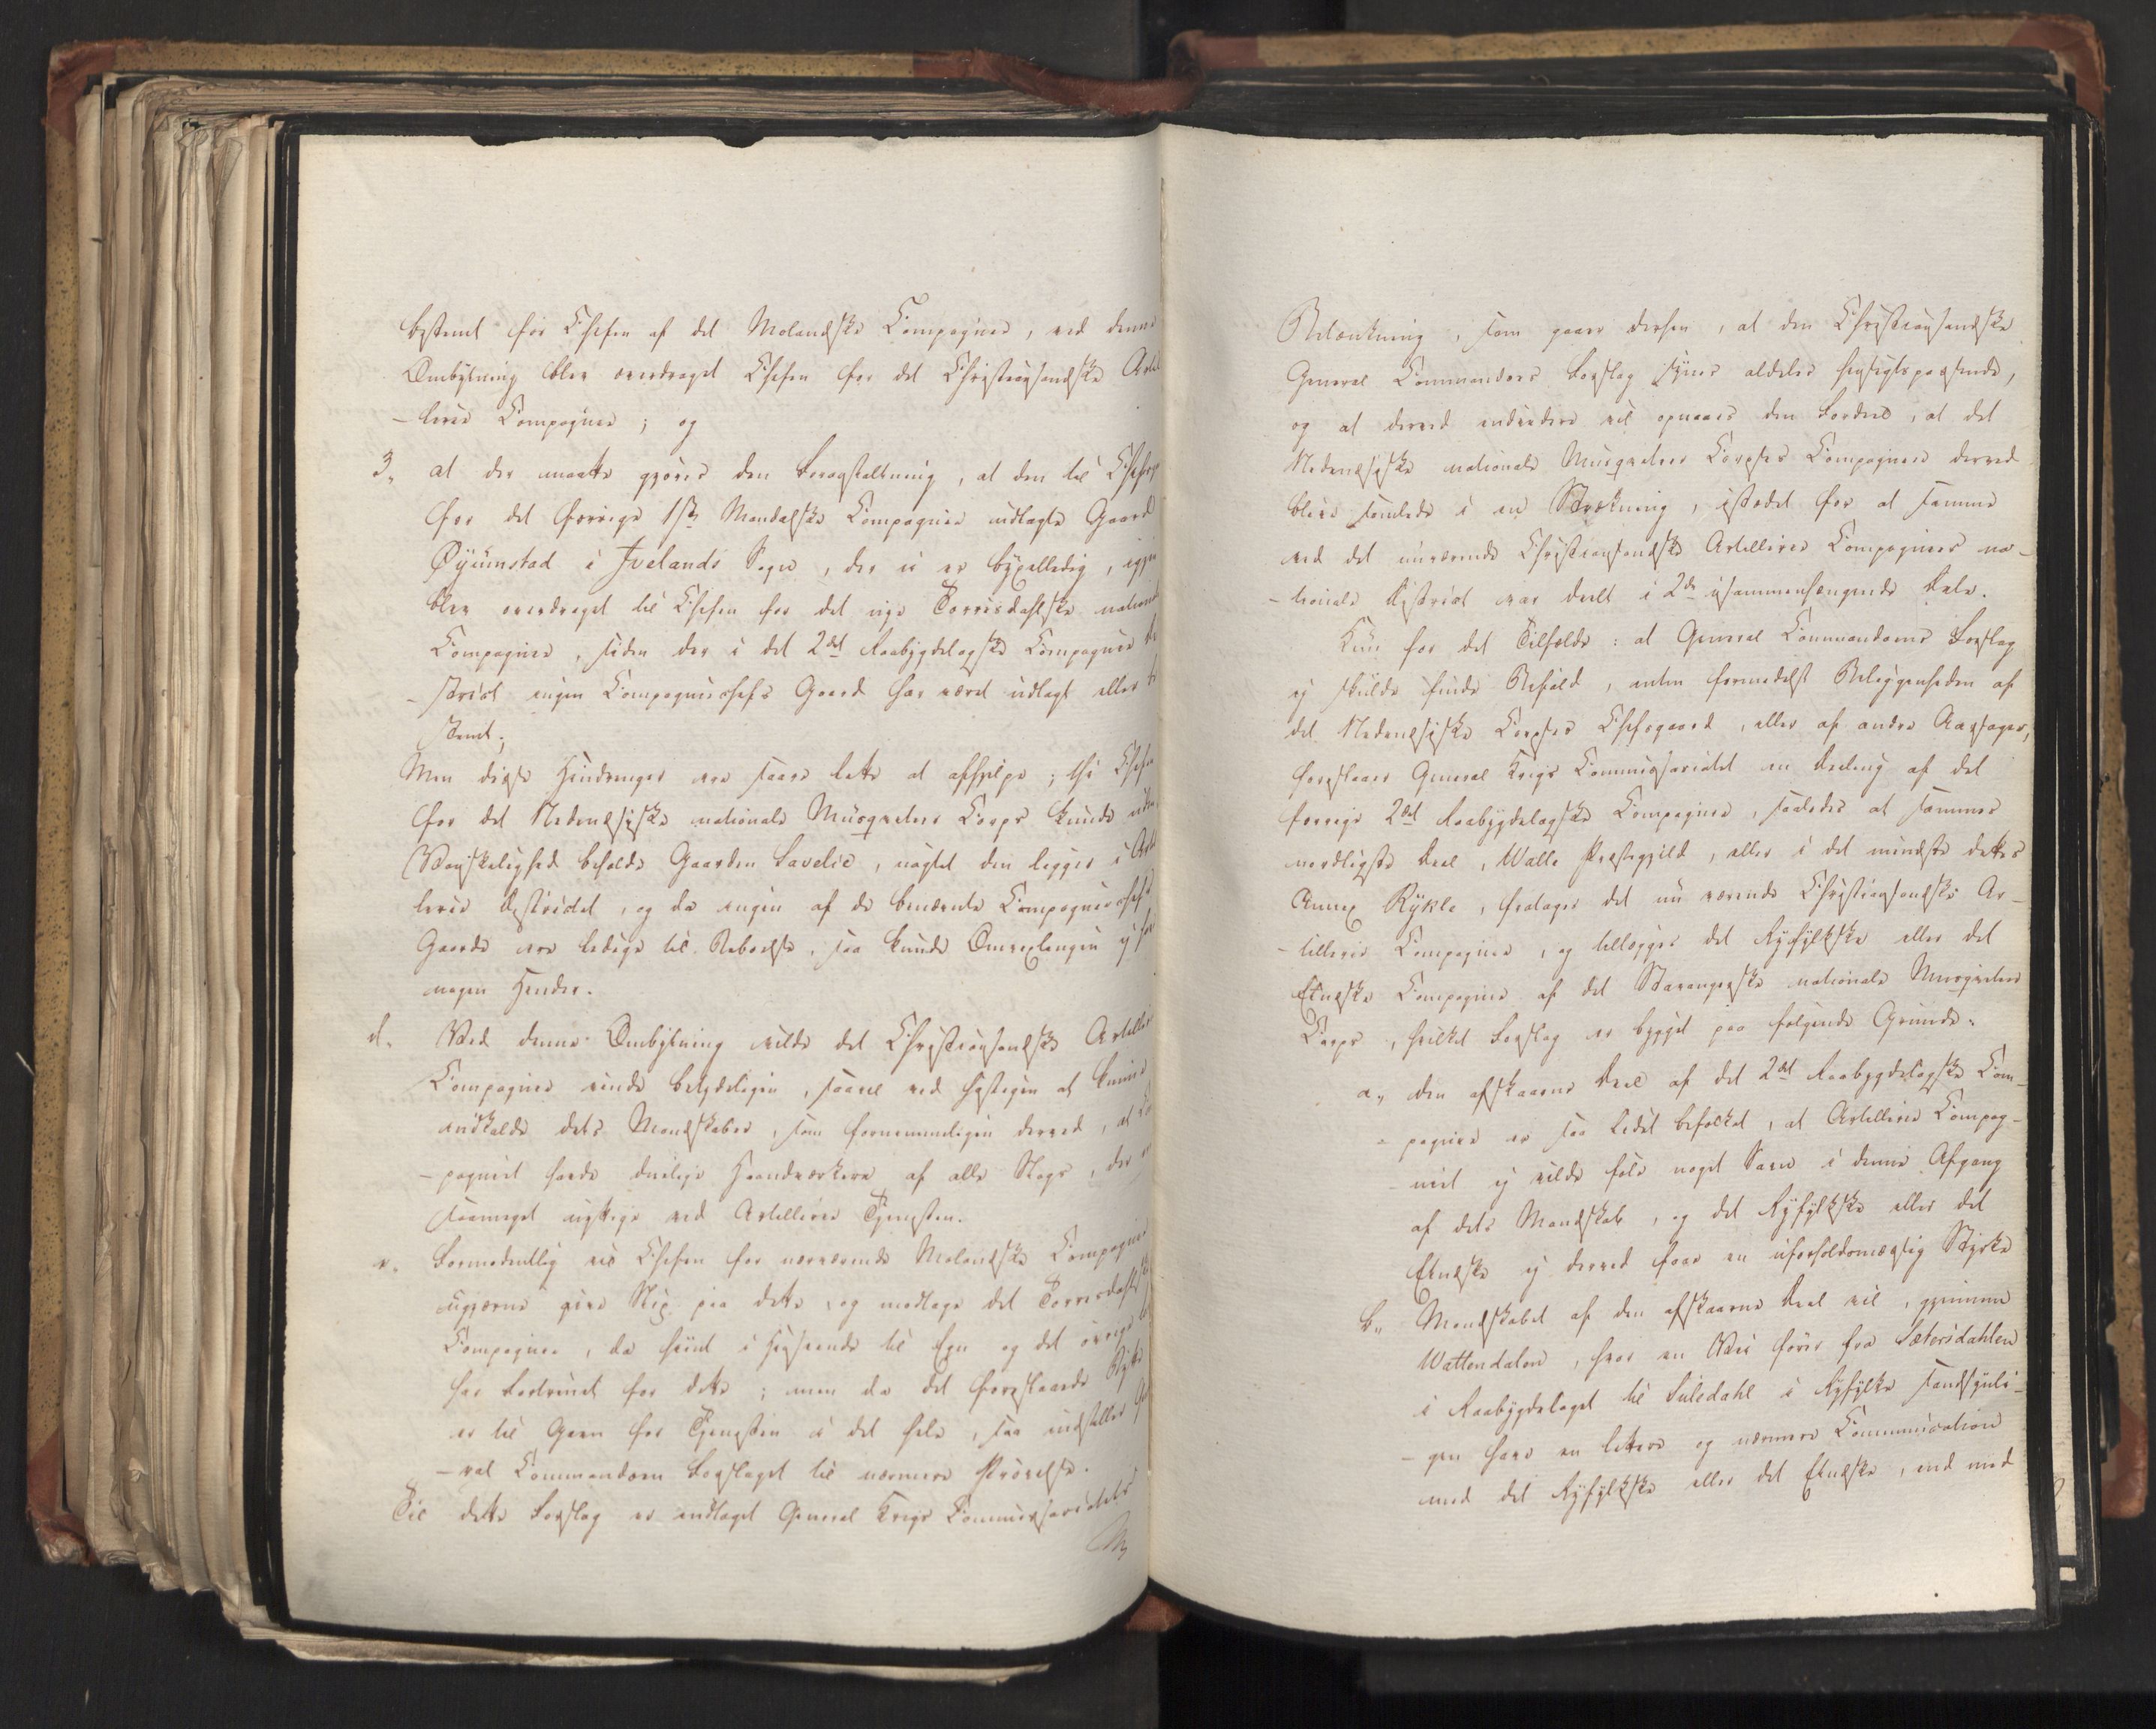 bestemt for Chefen af det Molandske Compagnie, ved denne
Ombytning blev overdraget Chefen for det Christiansandske Artil
-lerie Compagnie; og
3, at der maatte gjöres den Foranstaltning, at den til Chefen
for det forrige 1ste Mandalske Compagnie udlagte Gaard
Öyiunstad i Ivelands Sogn, der nu er byxelledig, igjen
blev overdraget til Chefen for det nye Torrisdahlske national
Compagnie, siden der i det 2det Raabygdelagske Compagnie Di
-strict ingen Compagniechefs Gaard har været udlagt eller be
stemt;
Men disse Hindringer ere saare lette at afhjelpe; thi Chefen
for det Nedenesiske nationale Musqueteer Corps kunde uden
Vanskelighed beholde Gaarden Favelie, uagtet den ligger i Artil
lerie Districtet, og da ingen af de benævnte Compagniechefs
Gaarde ere ledige til Beboelse, saa kunde Omvexlingen ej for
nogen Hinder.
d. Ved denne Ombytning vilde det Christiansandske Artillerie
Compagnie vinde betydeligen, saavel ved hastigen at kunne
indkalde dets Mandskaber, som fornemmeligen derved, at Com
-pagniet havde duelige Haandværkere af alle Slags, der er
saameget nyttige ved Artillerie Tjenesten.
e. Formodentlig vil Chefen for nærværende Molandske Compagnie
ugjerne give Slip paa dette, og modtage det Torrisdahlske
Compagnie, da hiint i Henseende til Egn og det övrige
har Fortrinet for dette; men da det foreslaaede Bytte
er til Gavn for Tjenesten i det hele, saa indstiller Ge
-ral Commandoen Forslaget til nærmere Prövelse.
Til dette Forslag er indtaget General Krigs Commissariatets
Betænkning, som gaaer derhen, at den Christiansandske
General Commandoes Forslag synes aldeles hensigtspassende,
og at derved endvidere vil opnaaes den Fordeel, at det
Nedenesiske nationale Musqueteer Corpses Compagnier derved
blive samlede i en Strækning, istedet for at samme
ved det nuværende Christiansandske Artillerie Compagnies na-
-tionale District var deelt i 2de usammenhængende Dele.
Kun for det Tilfælde: at General Commandoens Forslag
ej skulde finde Bifald, enten formedelst Beliggenheden af
det Nedenesiske Corpses Chefsgaard, eller af andre Aarsager,
foreslaaer General Krigs Commissariatet en Deeling af det
forrige 2det Raabygdelagske Compagnie, saaledes at sammes
nordligste Deel, Walle Præstegjeld, eller i det mindste dettes
Annex Rykle, fratages det nu værende Christiansandske Ar-
-tillerie Compagnie, og tillægges det Ryfylkske eller det
Etneske Compagnie af det Stavangerske nationale Musqueteer
Corps, hvilket Forslag er bygget paa fölgende Grunde:
a,, den afskaarne Deel af det 2det Raabygdelagske Com-
-pagnie er saa lidet befolket, at Artillerie Compag-
-niet ej vilde föle noget Savn i denne Afgang
af dets Mandskab, og det Ryfylkske eller det
Etneske ej derved faae en uforholdsmæssig Styrke
b,, Mandskabet af den afskaarne Deel vil, gjennem
Wattendalen, hvor en Vei förer fra Sætersdahlen
i Raabygdelaget til Suledahl i Ryfylke sandsynli-
-gen have en lettere og nærmere Communication
med det Ryfylkske eller det Etneske, end med